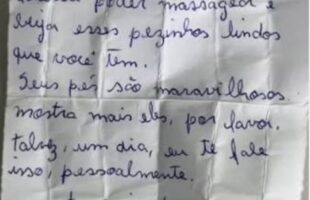 poder massagear e
beija esses pezinhos lindos
que você tem.
Seus pés são maravilhosos.
mostra mais eles, por favor,
talvez, um dia, eu te fale
isso, pessoalmente.